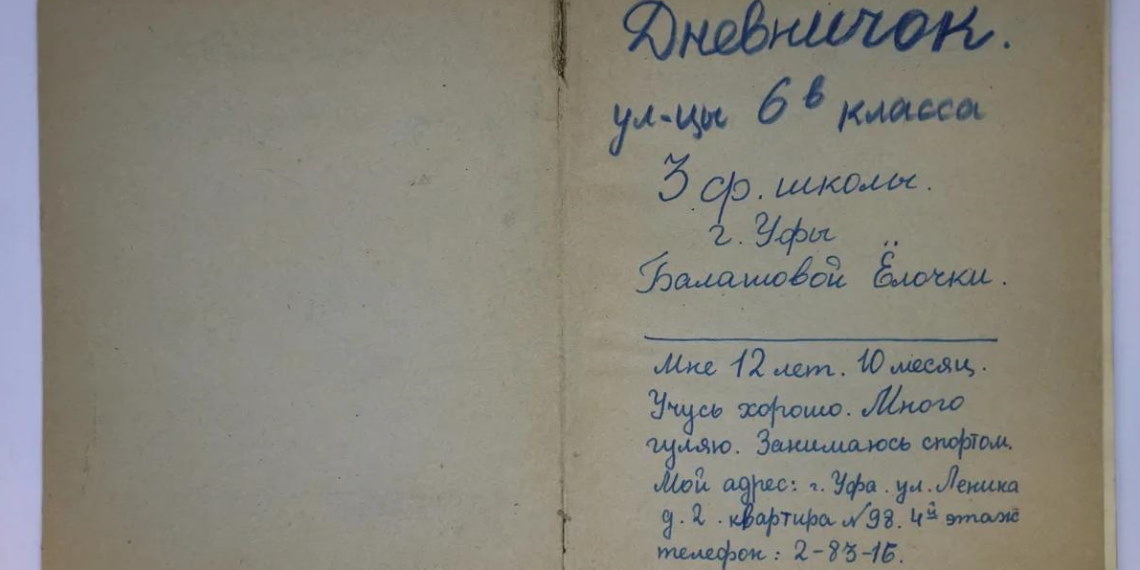 Дневничок.
ул-цы 6 в класса
3 ф. школы.
г. Уфы
Балашовой Ёлочки.
Мне 12 лет. 10 месяц.
Учусь хорошо. Много
гуляю. Занимаюсь спортом.
Мой адрес: г. Уфа. ул. Ленина
д. 2. квартира №98. 4й этаж
телефон: 2-83-15.